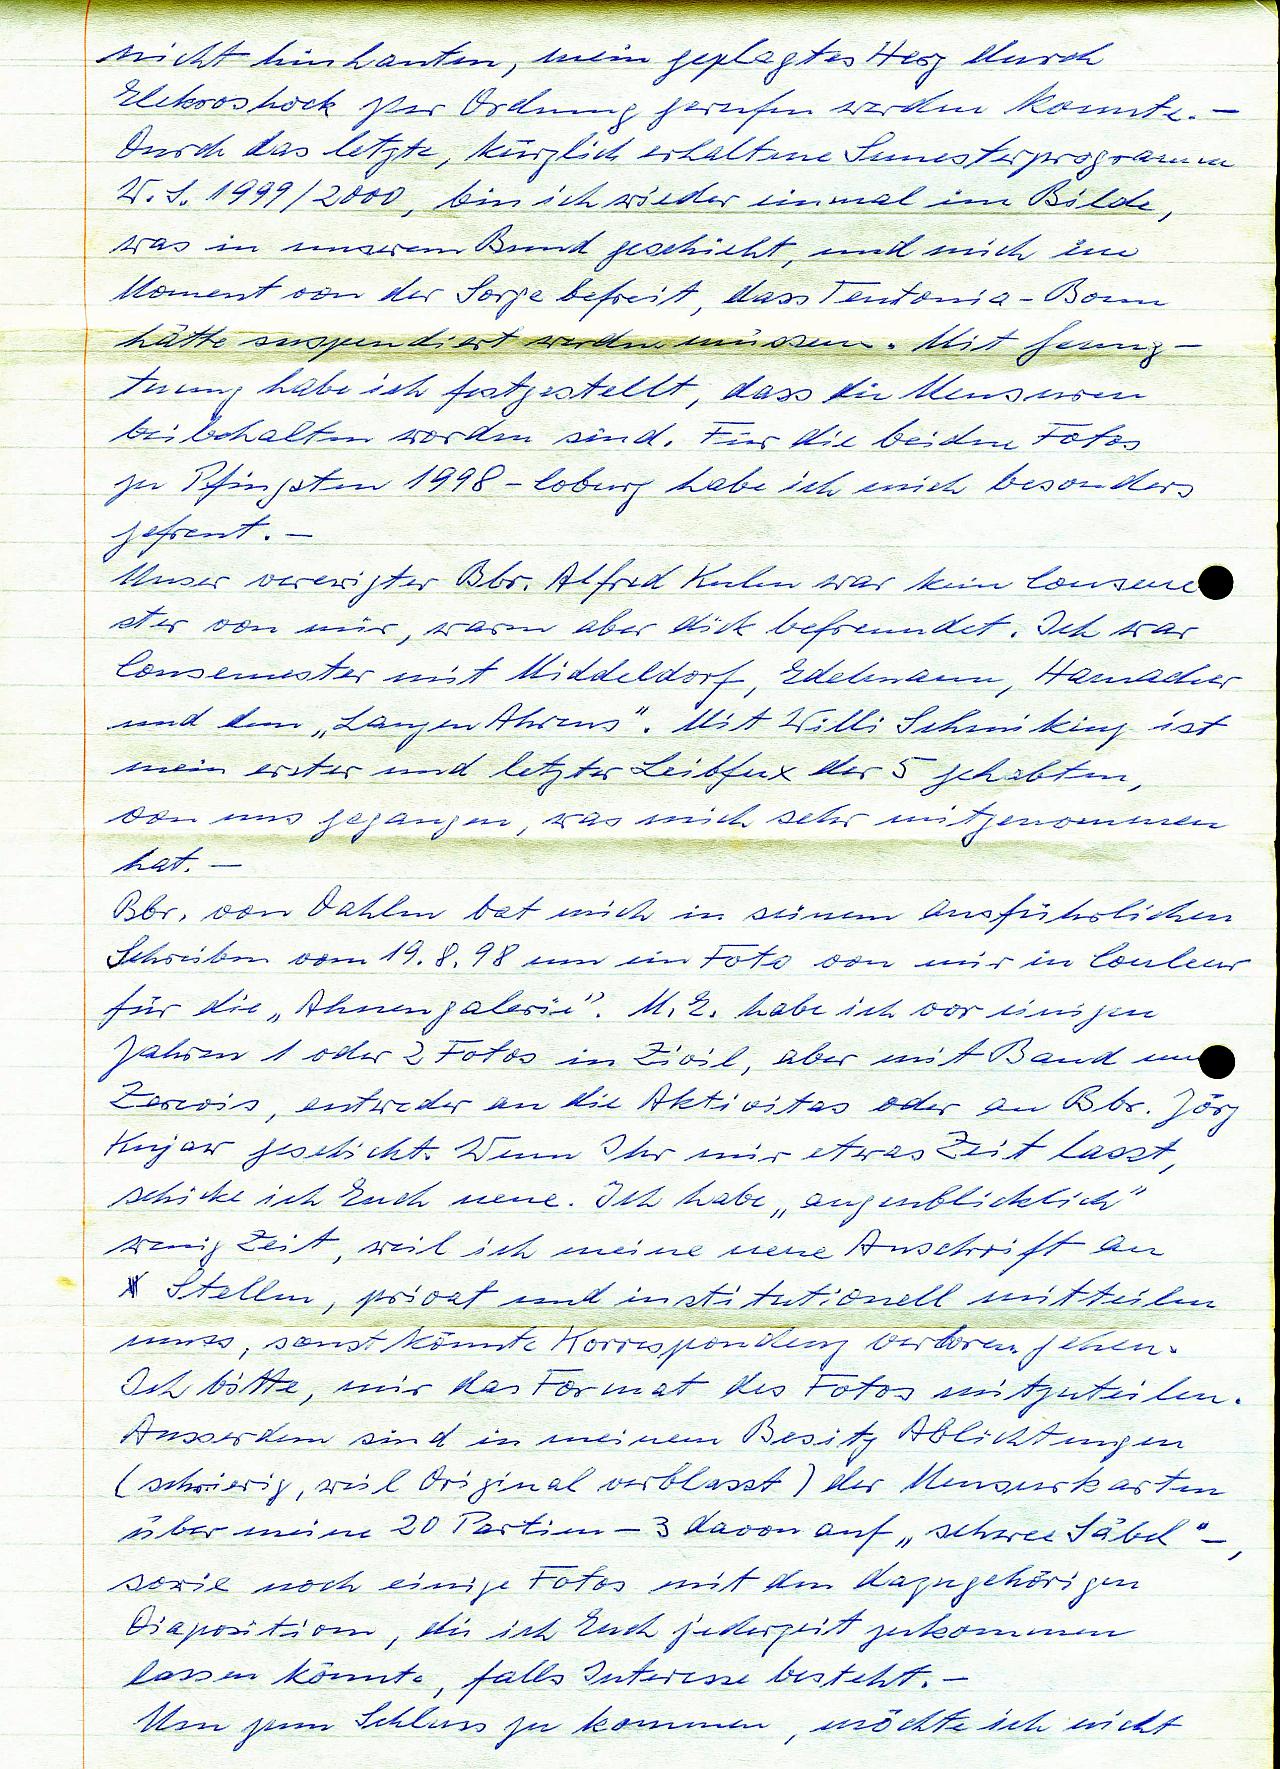 nicht hinhauten, mein geplagtes Herz durch
Elekroshock zur Ordnung gerufen werden konnte. –
Durch das letzte, kürzlich erhaltene Semesterprogramm
W.S. 1999/2000, bin ich wieder einmal im Bilde,
was in unserem Bund geschieht, und mich im
Moment von der Sorge befreit, dass Teutonia-Bonn
hätte suspendiert werden müssen. Mit Genug-
tuung habe ich festgestellt, dass die Mensuren
beibehalten worden sind. Für die beiden Fotos
zu Pfingsten 1998 – Coburg habe ich mich besonders
gefreut. –
Unser verewigter Bbr. Alfred Kuhn war kein Conseme
ster von mir, waren aber dick befreundet. Ich war
Consemester mit Middeldorf, Edelmann, Hamacher
und dem „Langen Ahrens“. Mit Willi Schmiking ist
mein erster und letzter Leibfux der 5 gehabten,
von uns gegangen, was mich sehr mitgenommen
hat. –
Bbr. von Dahlen bat mich in seinem ausführlichen
Schreiben vom 19.8.98 um ein Foto von mir in Couleur
für die „Ahnengalerie“. M.E. habe ich vor einigen
Jahren 1 oder 2 Fotos in Zivil, aber mit Band un
Zerevis, entweder an die Aktivitas oder an Bbr. Jörg
Kujaw geschickt. Wenn Ihr mir etwas Zeit lasst,
schicke ich Euch neue. Ich habe „augenblicklich“
wenig Zeit, weil ich meine neue Anschrift an
Stellen, privat und institutionell mitteilen
muss, sonst könnte Korrespondenz verloren gehen.
Ich bitte, mir das Format des Fotos mitzuteilen.
Ausserdem sind in meinem Besitz Ablichtungen
(schwierig, weil Original verblasst) der Mensurkarten
über meine 20 Partien – 3 davon auf „schwee Säbel“ –,
sowie noch einige Fotos mit den dazugehörigen
Diapositiven, die ich Euch jederzeit zukommen
lassen könnte, falls Interesse besteht. –
Um zum Schluss zu kommen, möchte ich nicht